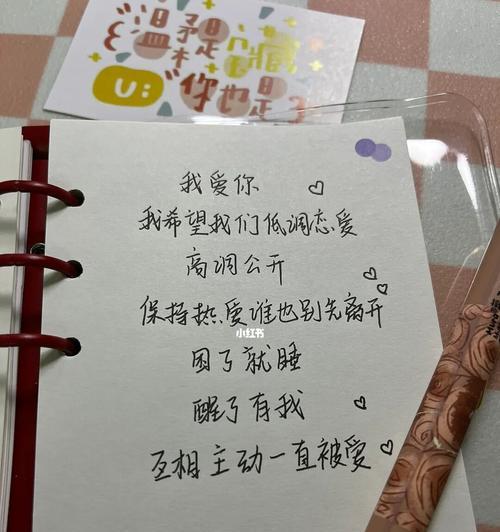 温柔是宝藏
U:
你也是
我爱你
我希望我们低调恋爱
高调公开
保持热爱谁也别先离开
小红书
困了就睡
醒了有我
互相主动一直被爱